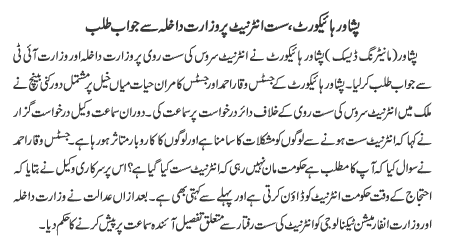 پشاور ہائیکورٹ، سست انٹرنیٹ پر وزارت داخلہ سے جواب طلب
پشاور (مانیٹرنگ ڈیسک) پشاور ہائیکورٹ نے انٹرنیٹ سروس کی سست روی پر وزارت داخلہ اور وزارت آئی ٹی
سے جواب طلب کر لیا۔ پشاور ہائیکورٹ کے جسٹس وقار احمد اور جسٹس کامران حیات میاں خیل پر مشتمل دو رکنی بینچ نے
ملک میں انٹرنیٹ سروس کی سست روی کے خلاف دائر درخواست پر سماعت کی۔ دوران سماعت وکیل درخواست گزار
نے کہا کہ انٹرنیٹ سست ہونے سے لوگوں کو مشکلات کا سامنا ہے اور لوگوں کا کاروبار متاثر ہو رہا ہے۔ جسٹس وقار احمد
نے سوال کیا کہ آپ کا مطلب ہے حکومت مان نہیں رہی کہ انٹرنیٹ سست کیا گیا ہے؟ اس پر سرکاری وکیل نے بتایا کہ
احتجاج کے وقت حکومت انٹرنیٹ کو ڈاؤن کرتی ہے اور پہلے سے کہتی بھی ہے۔ بعد ازاں عدالت نے وزارت داخلہ
اور وزارت انفارمیشن ٹیکنالوجی کو انٹرنیٹ کی سست رفتار سے متعلق تفصیل آئندہ سماعت پر پیش کرنے کا حکم دیا۔